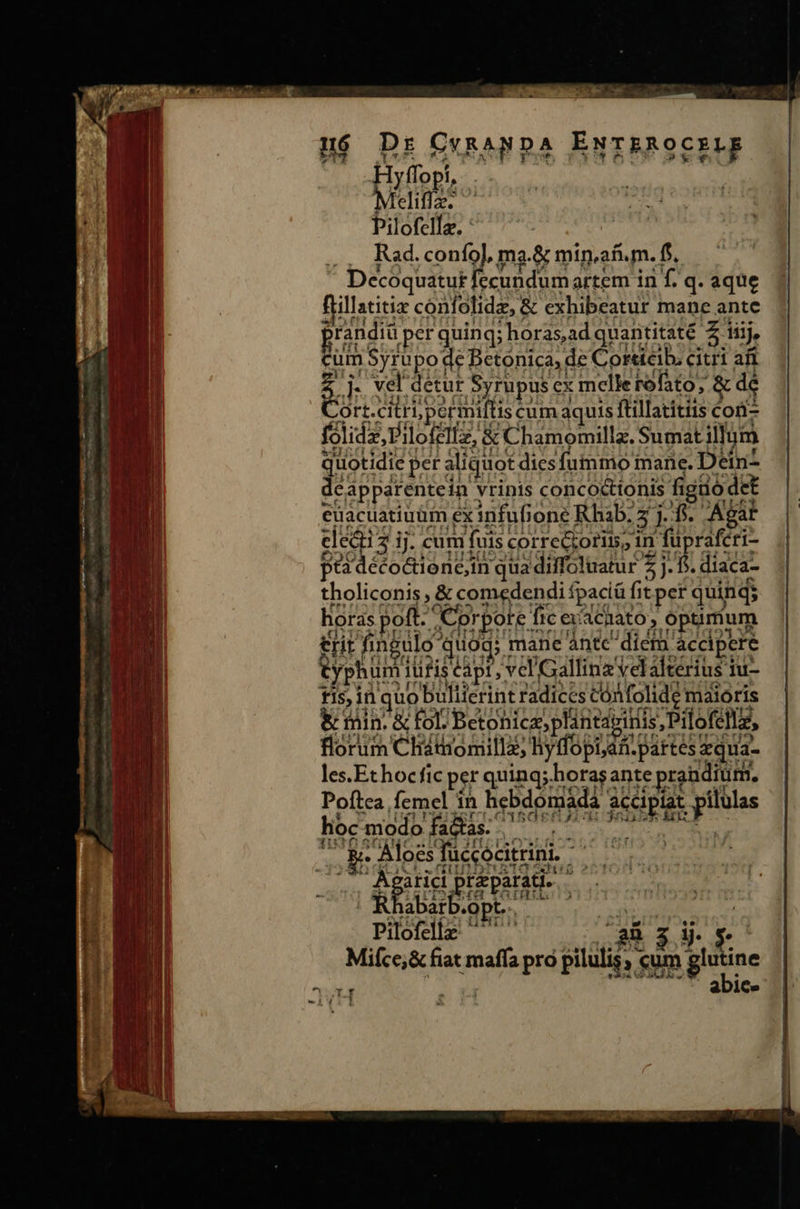 116 DE CVRANDA ENTEROCELE
Hyſſopi,
Meliſſæ.
Piloſellæ.
Rad. conſol. ma. & min. añ. m. ß.
Decoquatur ſecundum artem in ſ. q. aque
ſtillatitiæ conſolidæ, & exhibeatur mane ante
prandiũ per quinq; horas, ad quantitatẽ ℥ iiij.
cum Syrupo de Betonica, de Corticib. citri añ
℥ j. vel detur Syrupus ex melle roſato, & de
Cort. citri, permiſtis cum aquis ſtillatitiis con-
ſolidæ, Piloſellæ, & Chamomillæ. Sumat illum
quotidie per aliquot dies ſummo mane. Dein-
de apparentein vrinis concoctionis ſigno det
euacuatiuũm ex infuſione Rhab. ʒ j. ß. Agar
electi ʒ ij. cum ſuis correctoriis, in ſupraſcri-
pta decoctione, in qua diſſoluatur ℥ j. ß. diaca-
tholiconis, & comedendi ſpaciũ fit per quinq;
horas poſt. Corpore ſic euacuato, optimum
erit ſingulo quoq; mane ante diem accipere
cyphum iuris capi, vel Gallinæ vel alterius iu-
ris, in quo bullierint radices conſolidę maioris
& min. & fol. Betonicæ, plantaginis, Piloſellæ,
florum Chamomillæ, hyſſopi, añ. partes æqua-
les. Et hoc ſic per quinq; horas ante prandium.
Poſtea ſemel in hebdomada accipiat pilulas
hoc modo factas.
℞. Aloës ſuccocitrini.
Agarici præparati.
Rhabarb. opt.
Piloſellæ añ ʒ ij. ß.
Miſce, & fiat maſſa pro pilulis, cum glutine
abice-